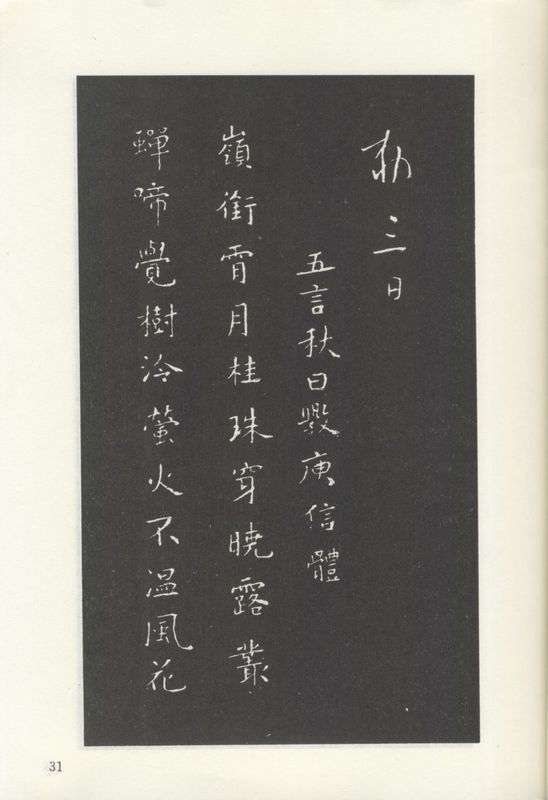 三日
五言秋日斅庾信體
嶺銜霄月桂珠穿曉露叢
蟬啼覺樹冷螢火不温風花
31